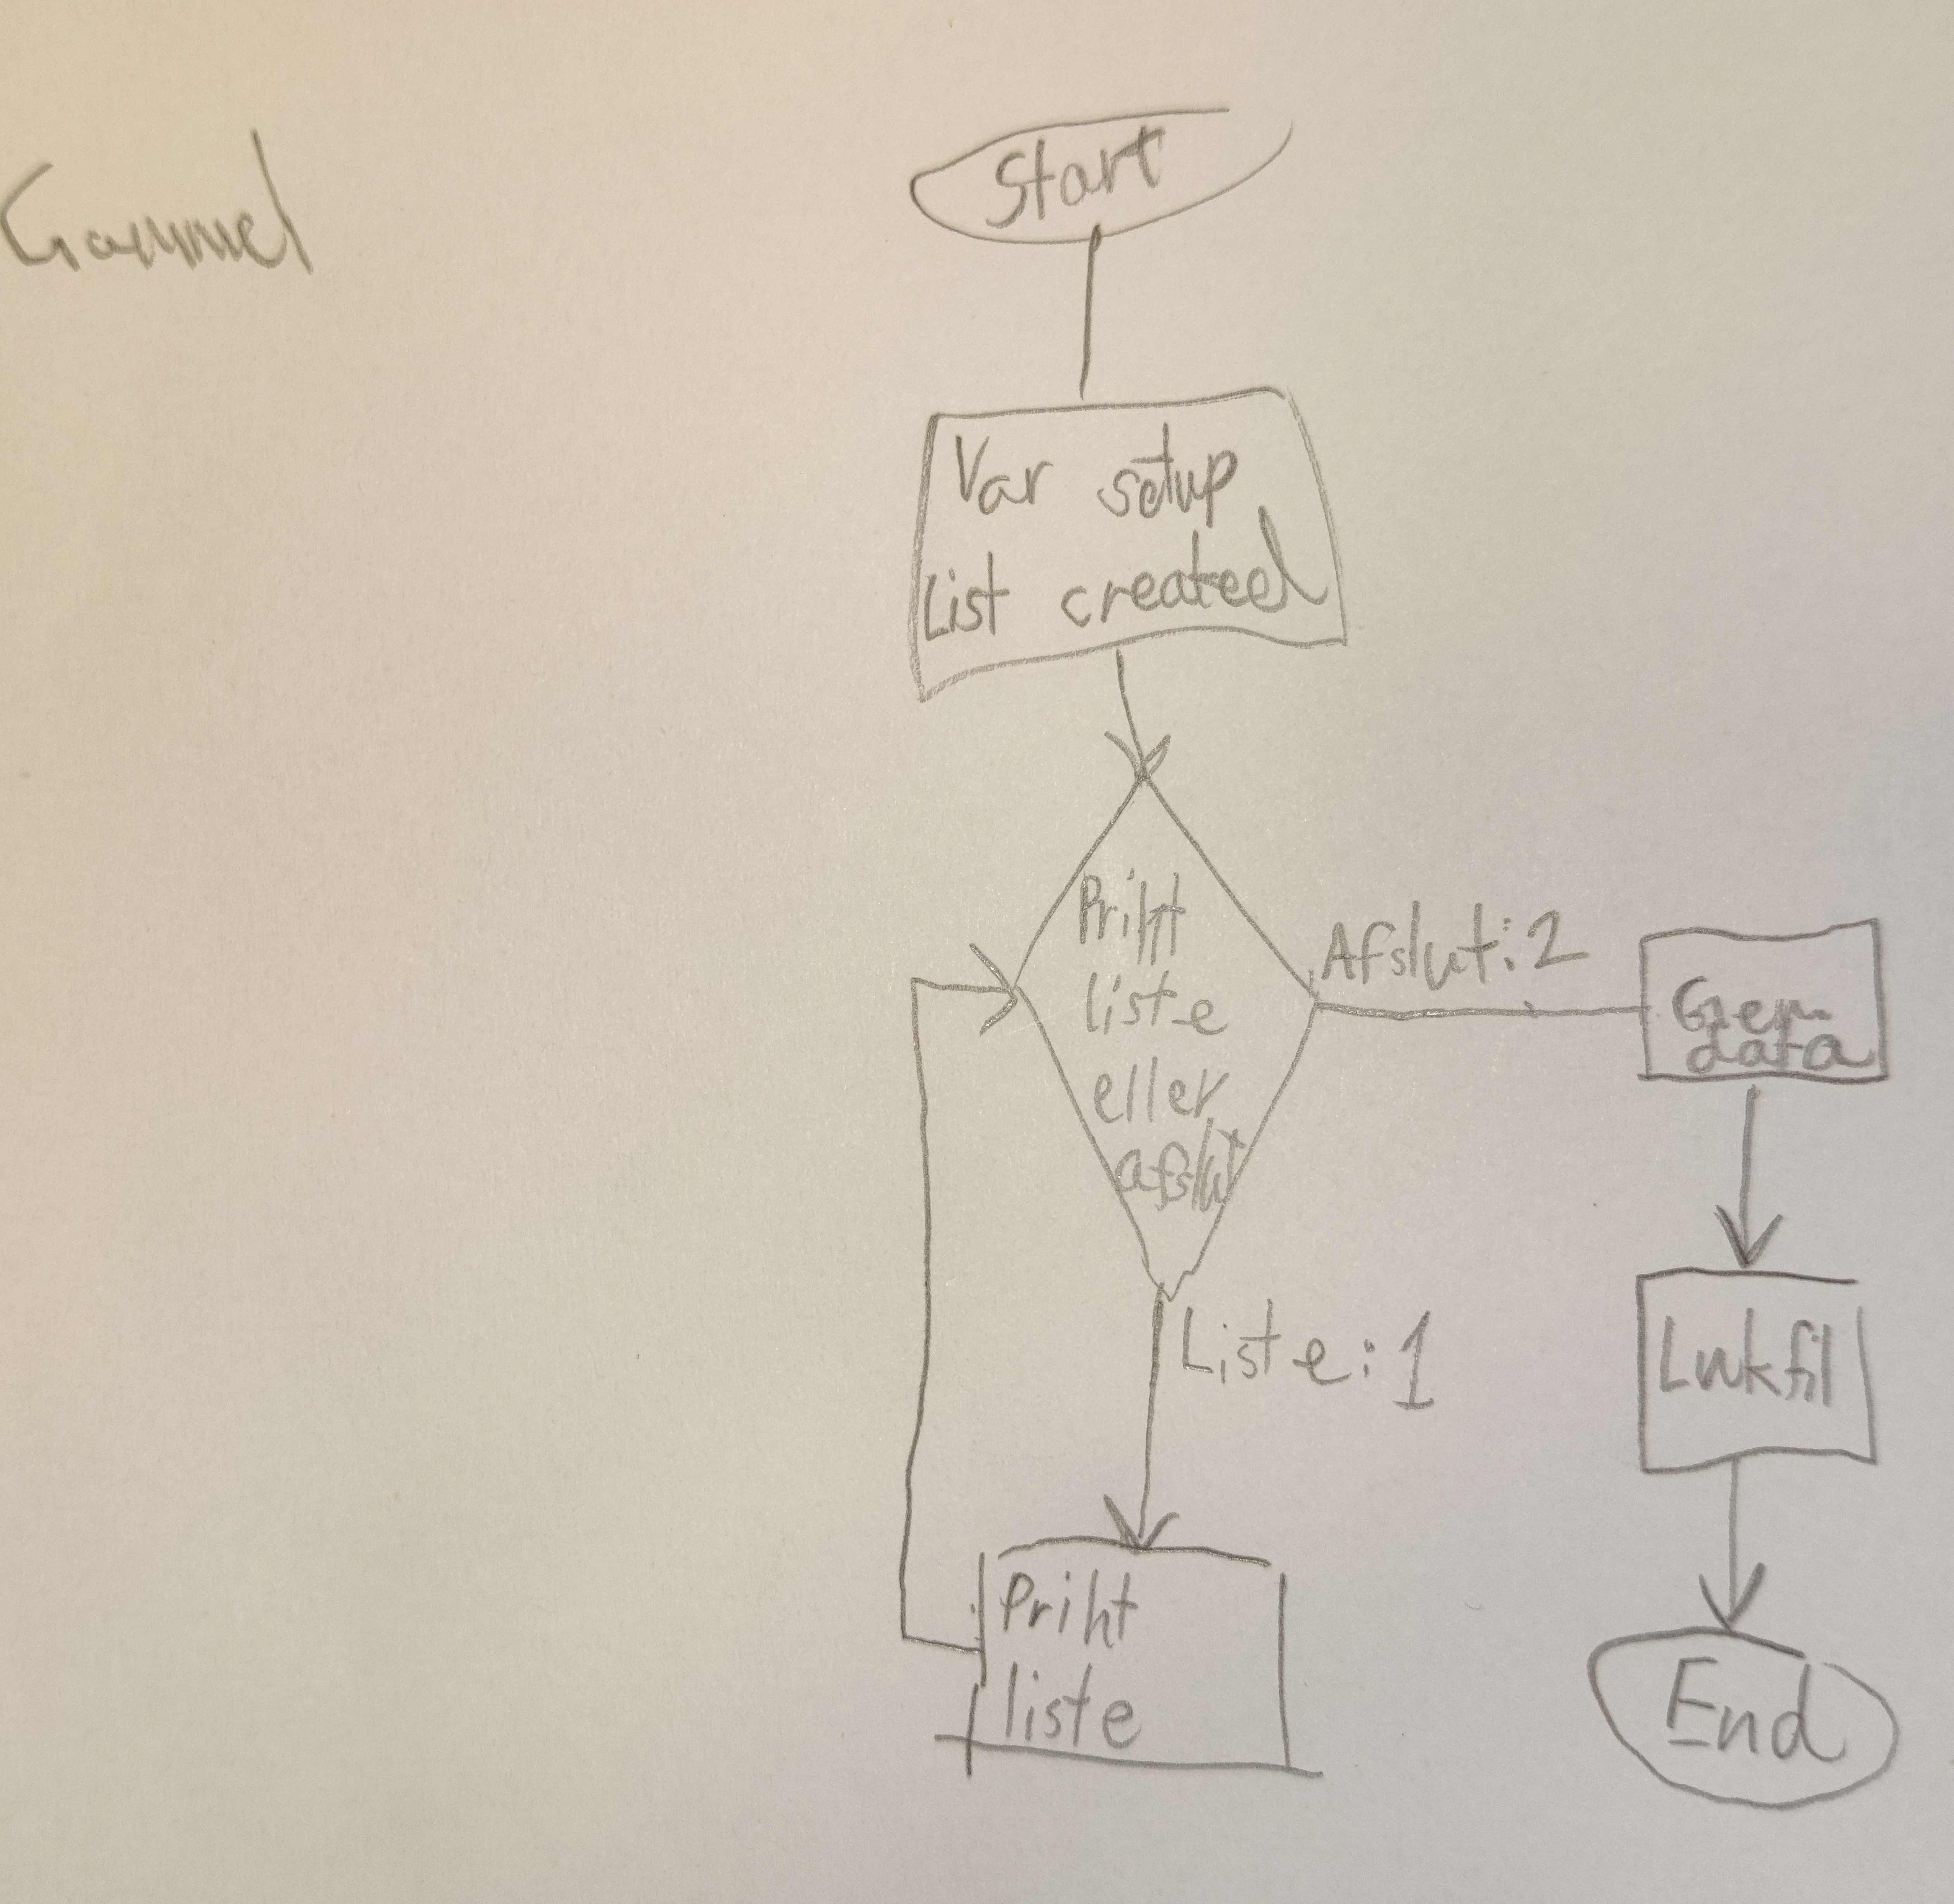 Gammel
Start
Var setup
List created
Print
liste
eller
afslut
Afslut: 2
Gem
data
Luk fil
Liste: 1
Print
liste
End